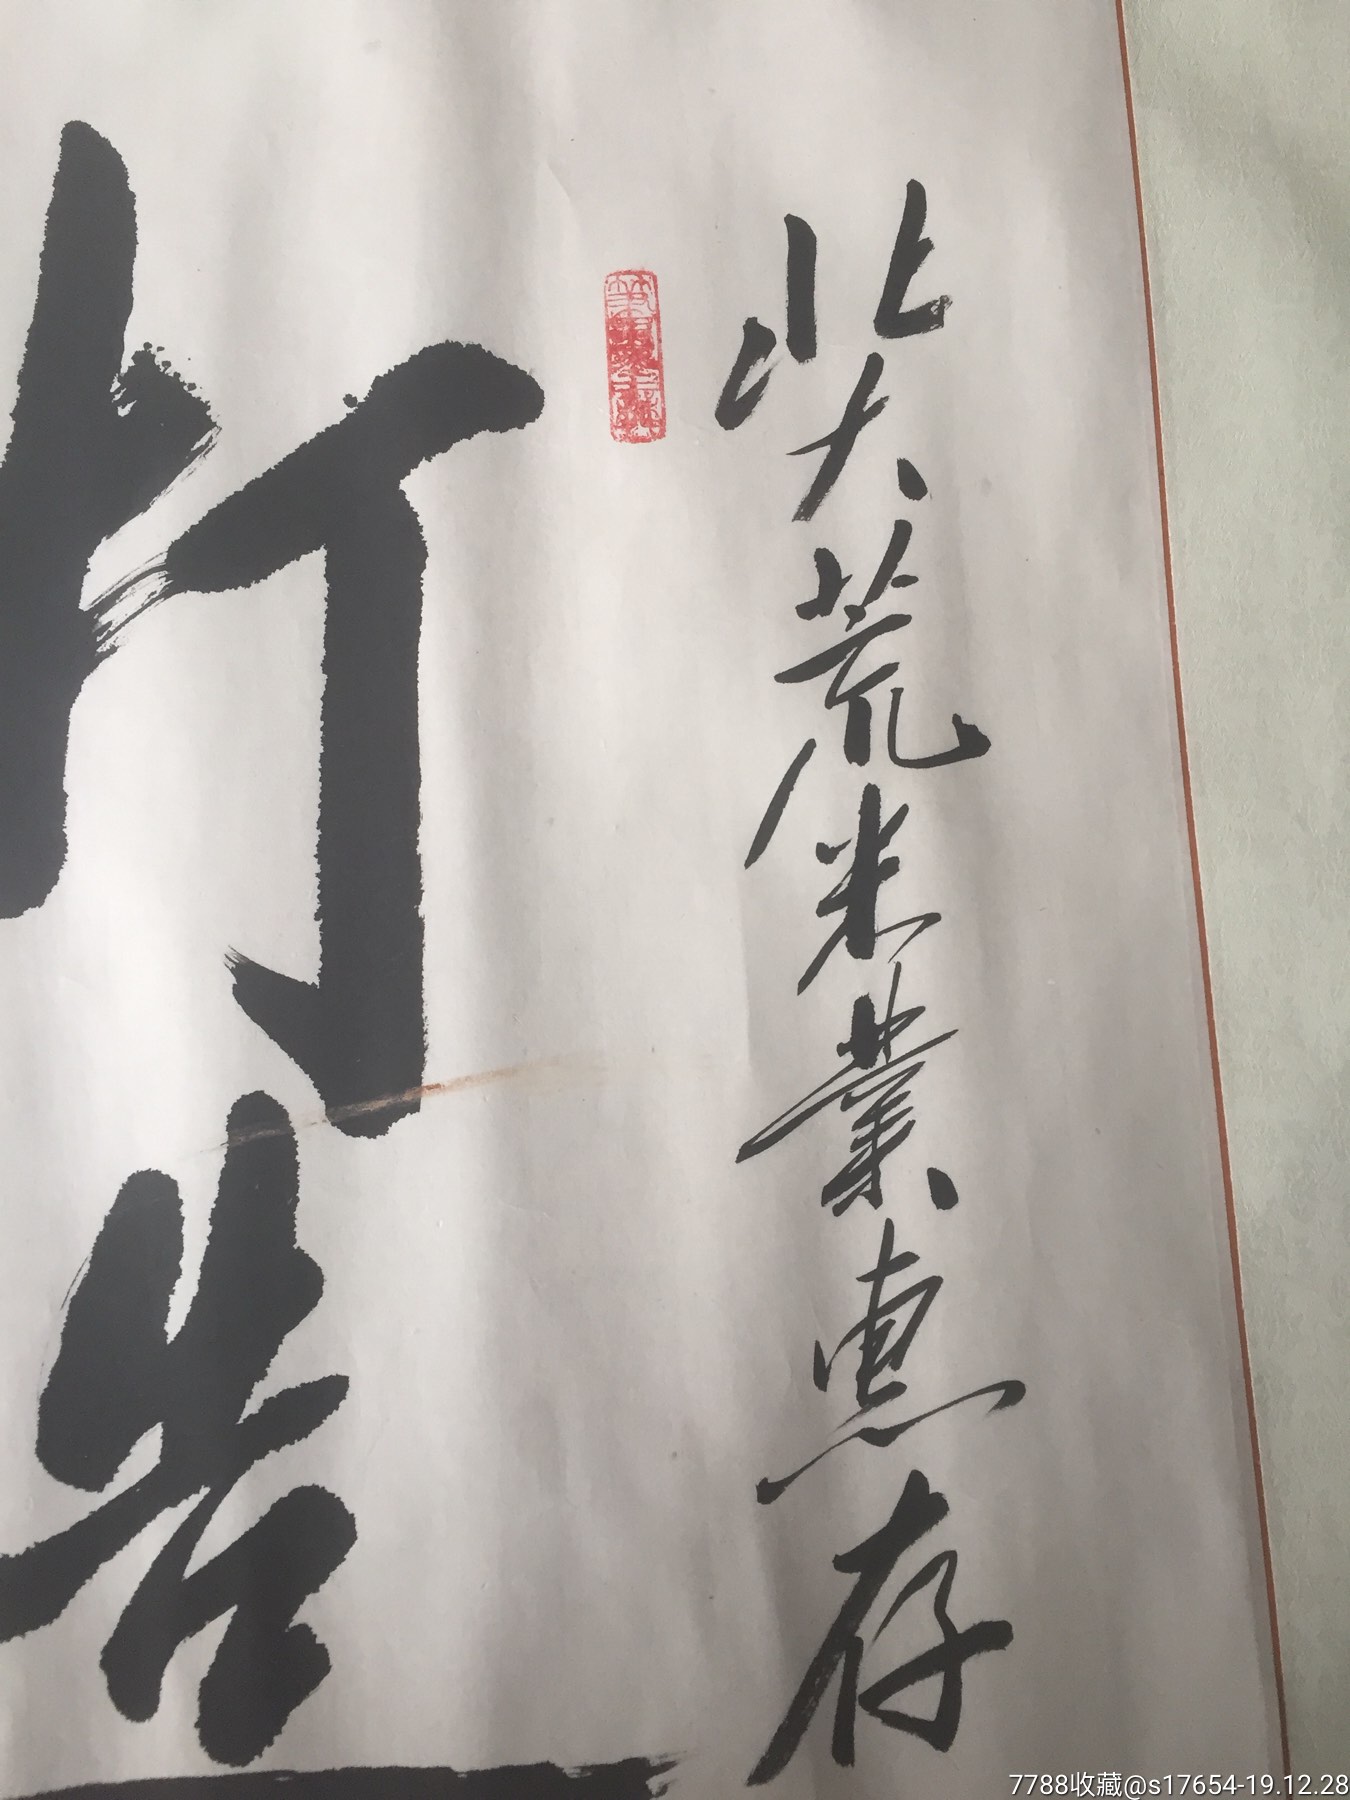 北大荒米業惠存
竹
告
7788收藏@s17654-19.12.28